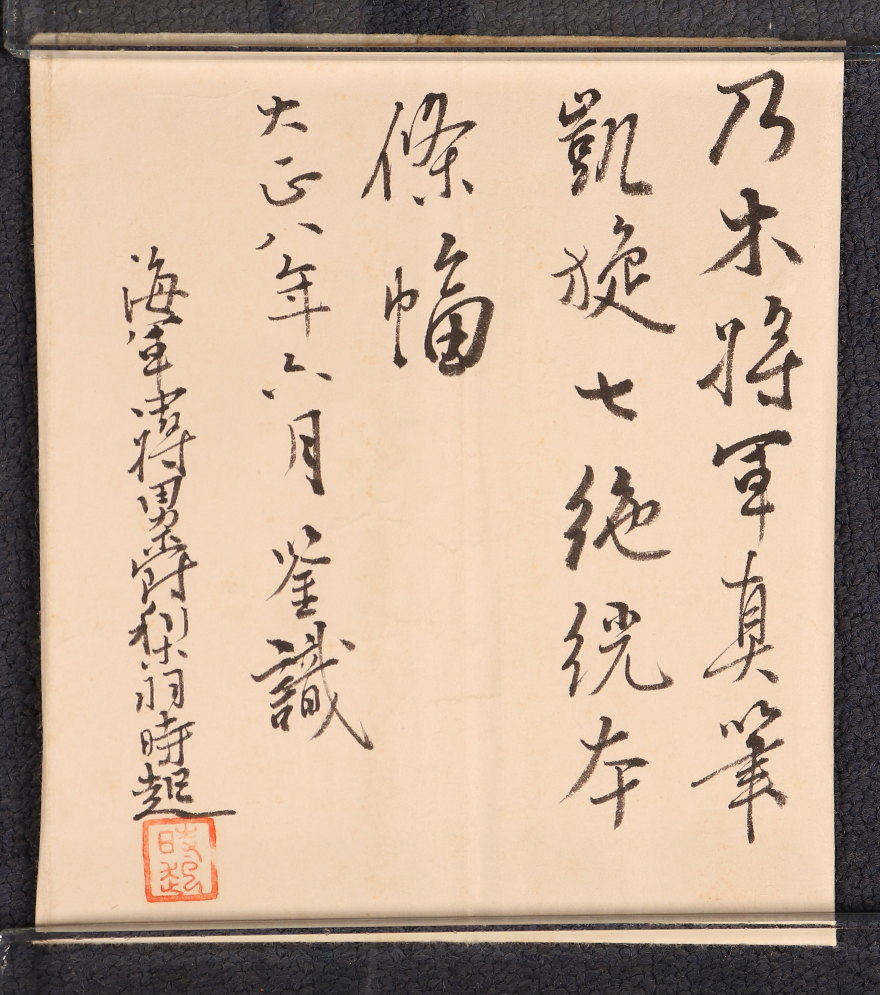 乃木将軍真筆
凱旋七絶絖本
條幅
大正八年六月鉴識
海軍少将男爵梨羽時起
時起